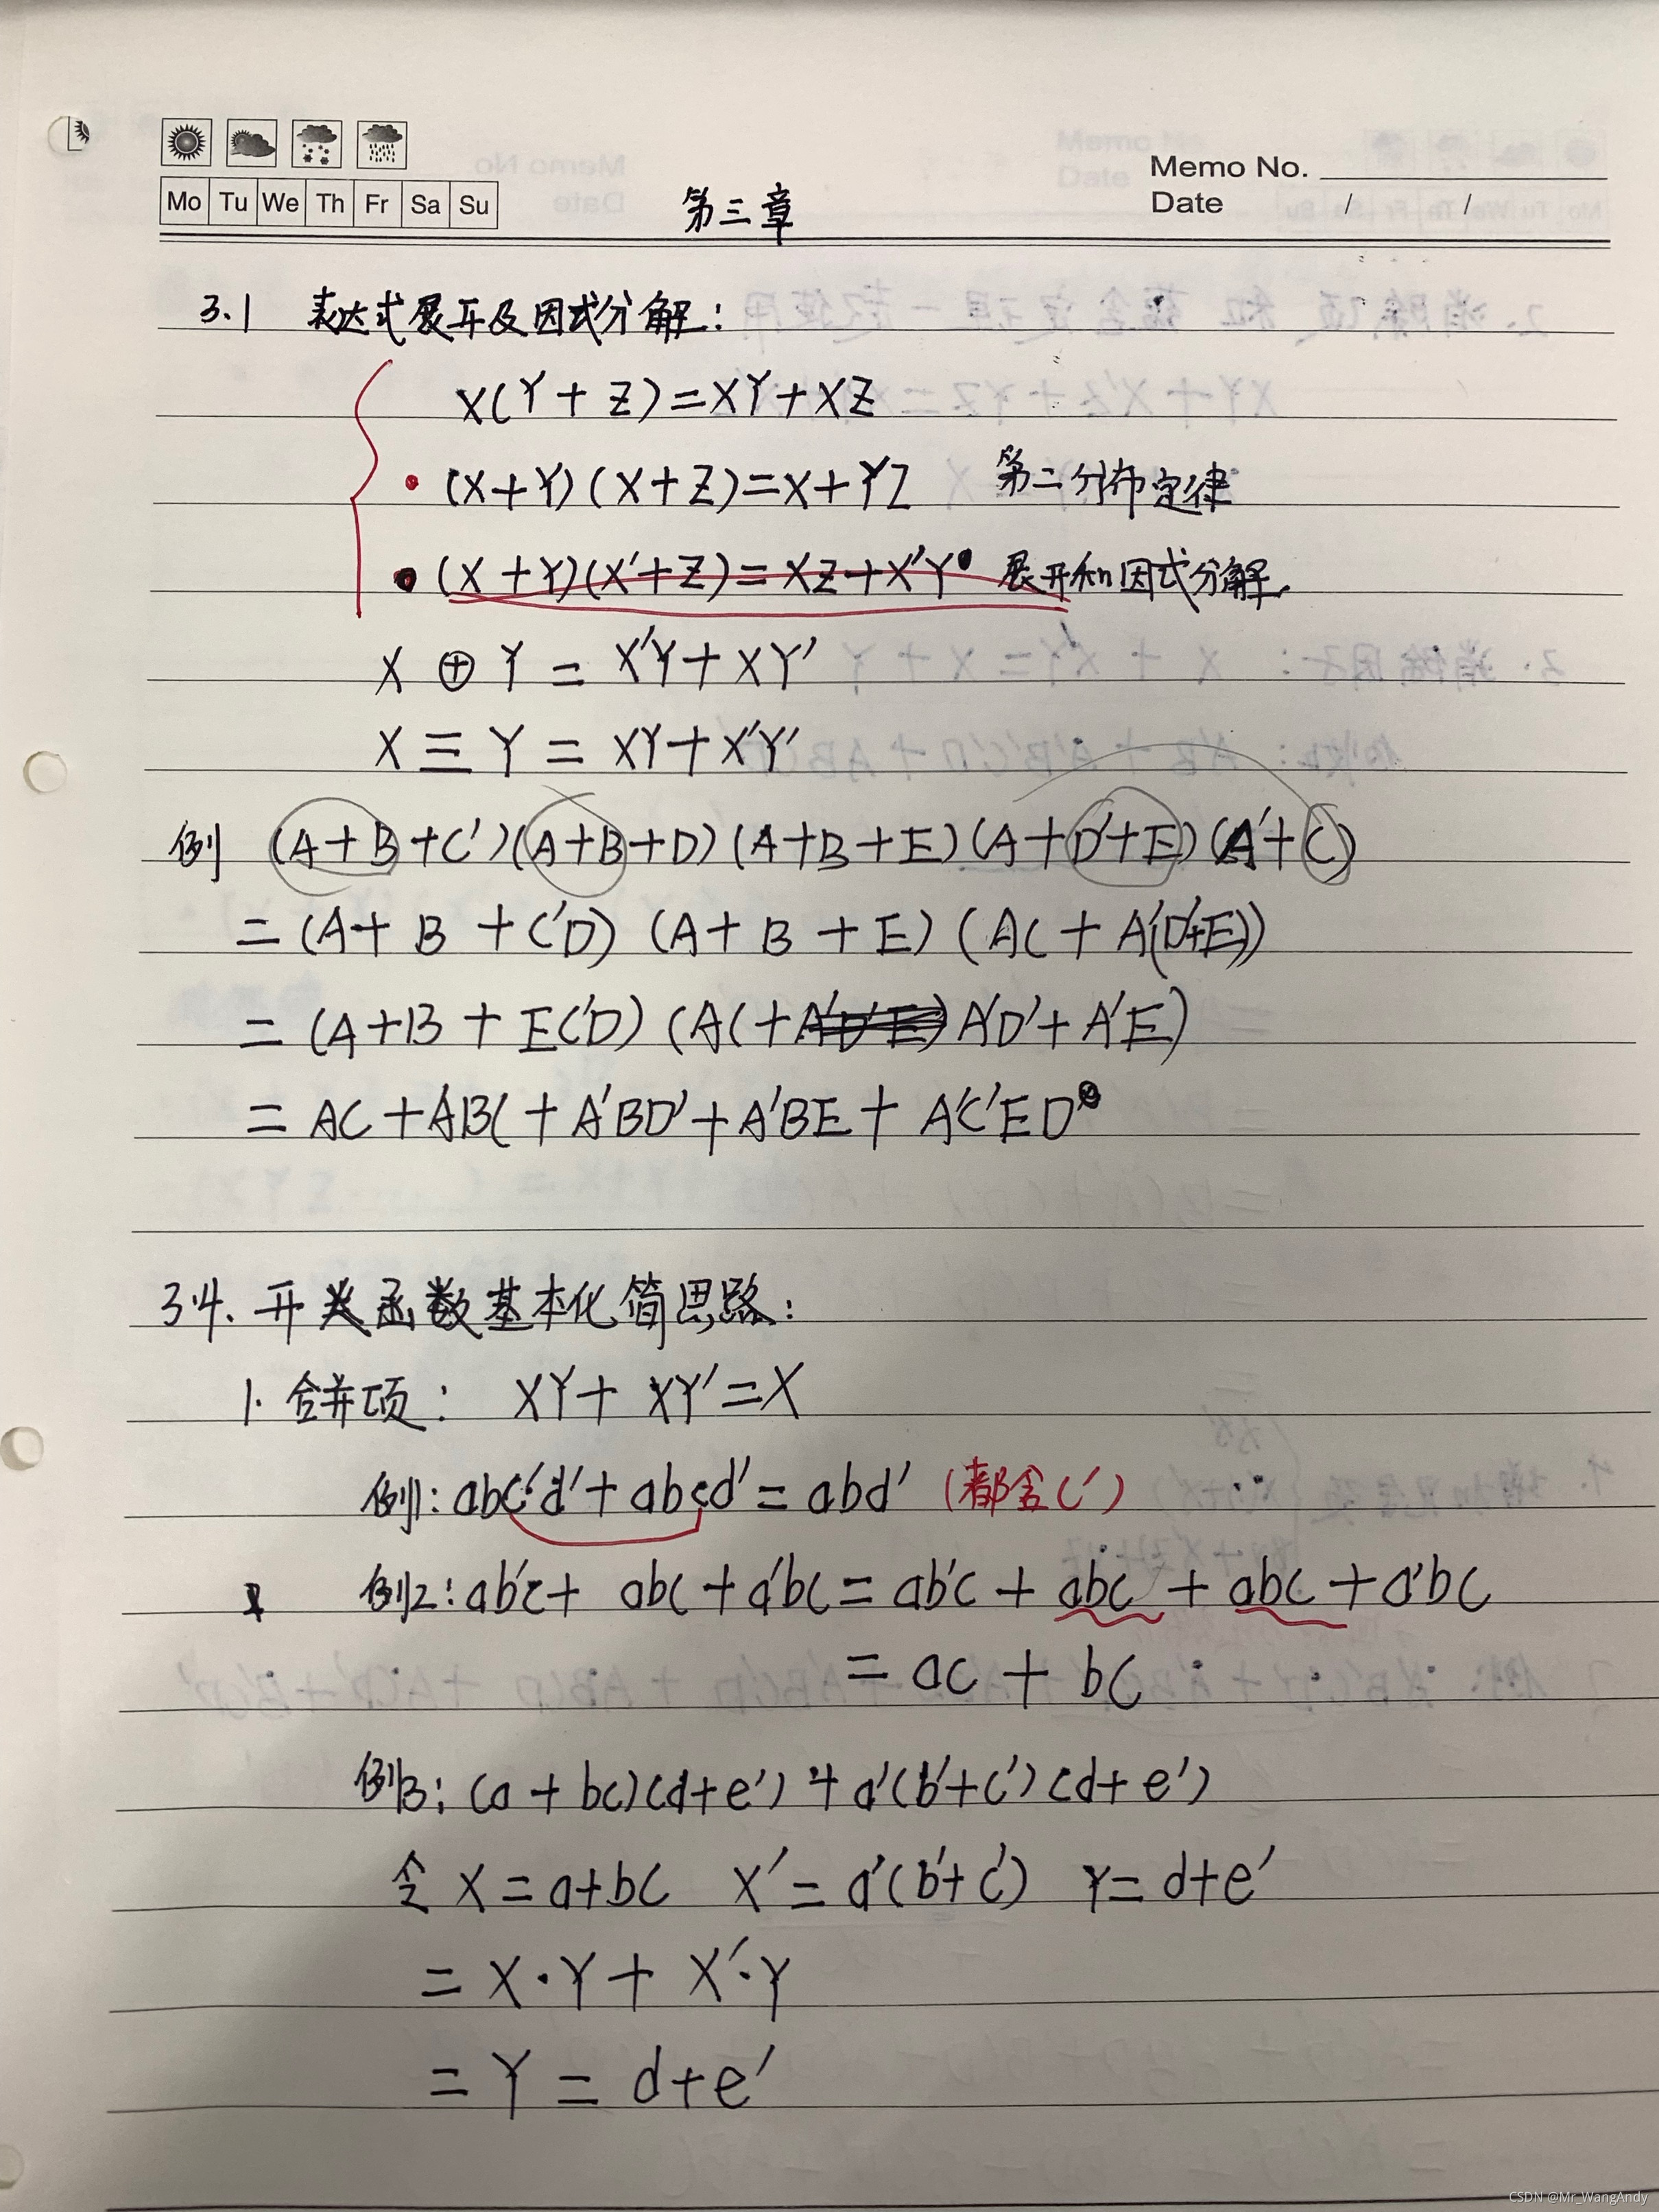 Mo Tu We Th Fr Sa Su
Memo No.
Date / /
第三章
3.1 表达式展开及因式分解：
X(Y+Z)=XY+XZ
(X+Y)(X+Z)=X+YZ 第二分布定律
(X+Y)(X'+Z)=XZ+X'Y 展开和因式分解.
X⊕Y=X'Y+XY'
X≡Y=XY+X'Y'
例 (A+B+C')(A+B+D)(A+B+E)(A+D'+E)(A'+C)
=(A+B+C'D)(A+B+E)(AC+A'(D'+E))
=(A+B+EC'D)(AC+A'D'+A'E)
=AC+ABC+A'BD'+A'BE+A'C'ED
3.4. 开关函数基本化简思路：
1. 合并项： XY+XY'=X
例1: abc'd'+abcd'=abd' (都含c')
例2: ab'c+abc+a'bc=ab'c+abc+abc+a'bc
=ac+bc
例3: (a+bc)(d+e')+a'(b'+c')(d+e')
令 X=a+bc X'=a'(b'+c') Y=d+e'
=X·Y+X'·Y
=Y=d+e'
CSDN @Mr_WangAndy